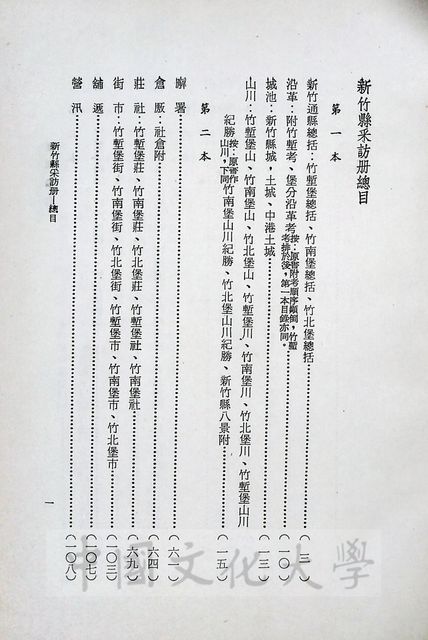 新竹縣采訪册總目
第一本
新竹通縣總括：竹塹堡總括、竹南堡總括、竹北堡總括……（三）
沿革：附竹塹考、堡分沿革考按：原書附考順序顛倒，竹塹考排於後，第一本目錄亦同。……（一〇）
城池：新竹縣城，土城、中港土城……（一三）
山川：竹塹堡山、竹南堡山、竹北堡山、竹塹堡川、竹南堡川、竹北堡川、竹塹堡山川
紀勝按：原書作山川，下同竹南堡山川紀勝、竹北堡山川紀勝、新竹縣八景附……（一五）
第二本
廨署……（六一）
倉廒：社倉附……（六四）
莊社：竹塹堡莊、竹南堡莊、竹北堡莊、竹塹堡社、竹南堡社……（六九）
街市：竹塹堡街、竹南堡街、竹北堡街、竹塹堡市、竹南堡市、竹北堡市……（一〇三）
舖遞……（一〇七）
營汛……（一〇八）
新竹縣采訪册—總目
一
中國文化大學